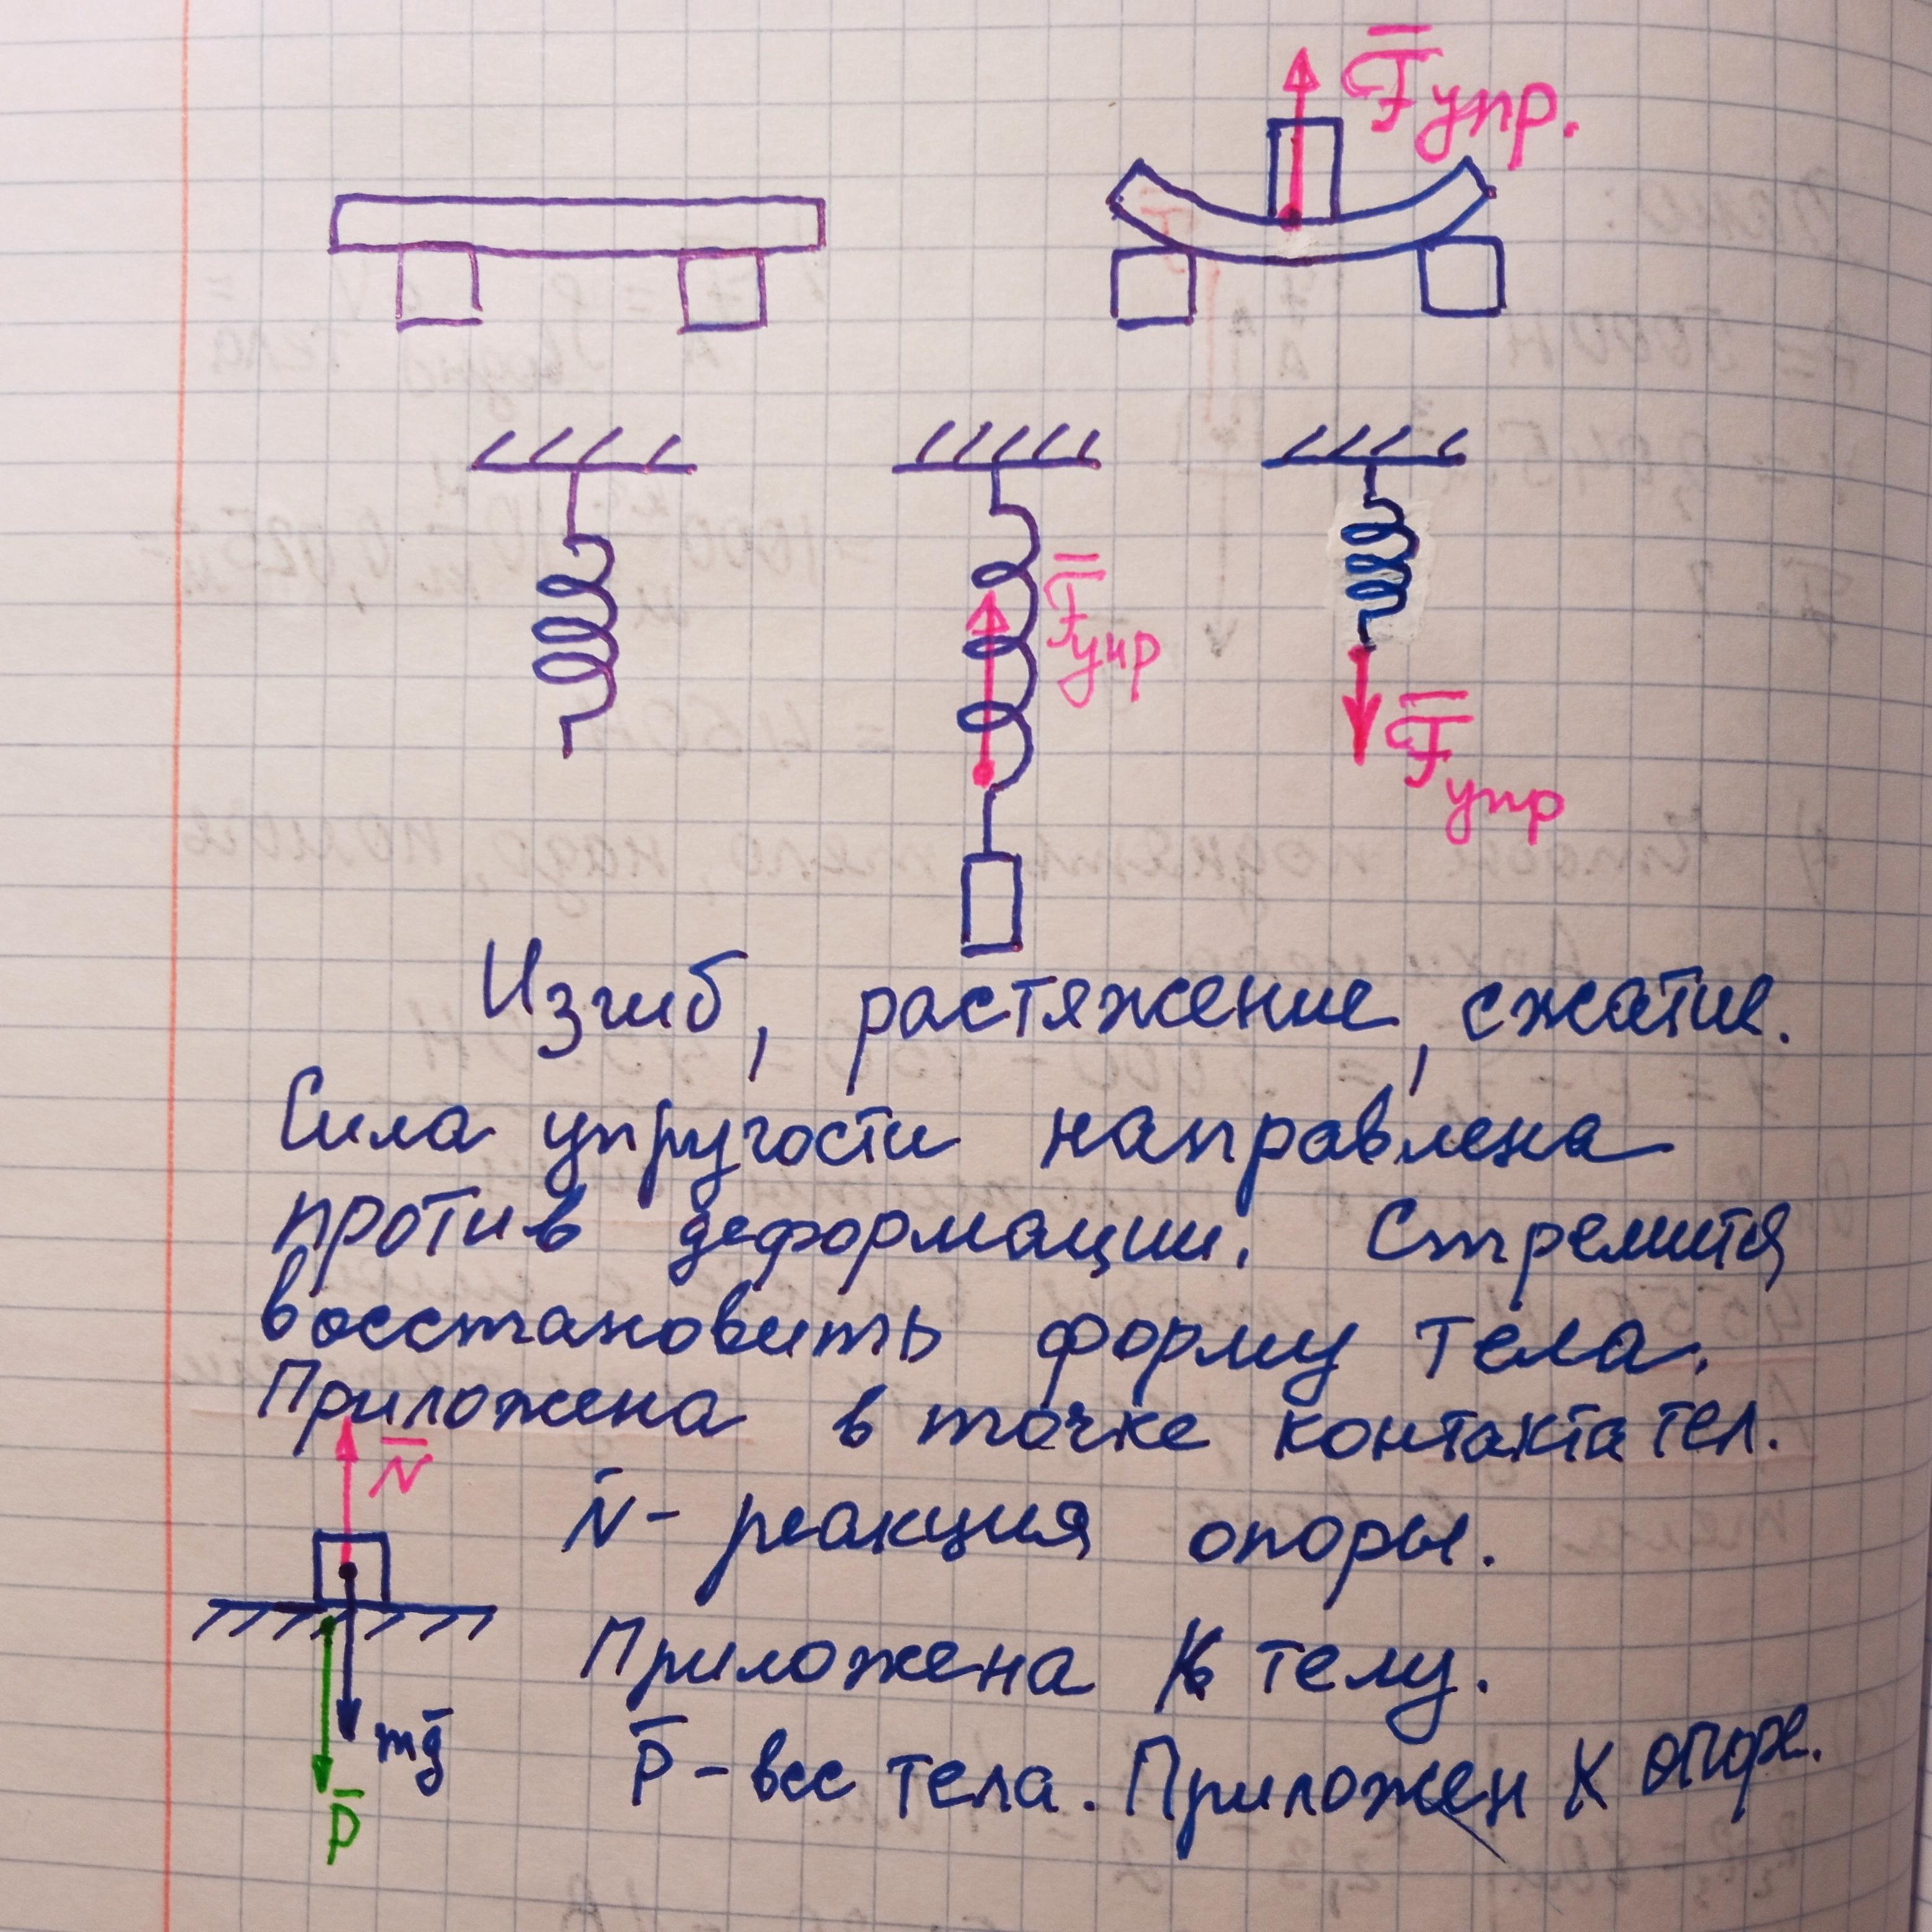 F̅упр.
F̅упр
F̅упр
Изгиб, растяжение, сжатие.
Сила упругости направлена
против деформации. Стремится
восстановить форму тела.
Приложена в точке контакта тел.
N̅
N̅ - реакция опоры.
Приложена к телу.
mg̅
P̅ - вес тела. Приложен к опоре.
P̅